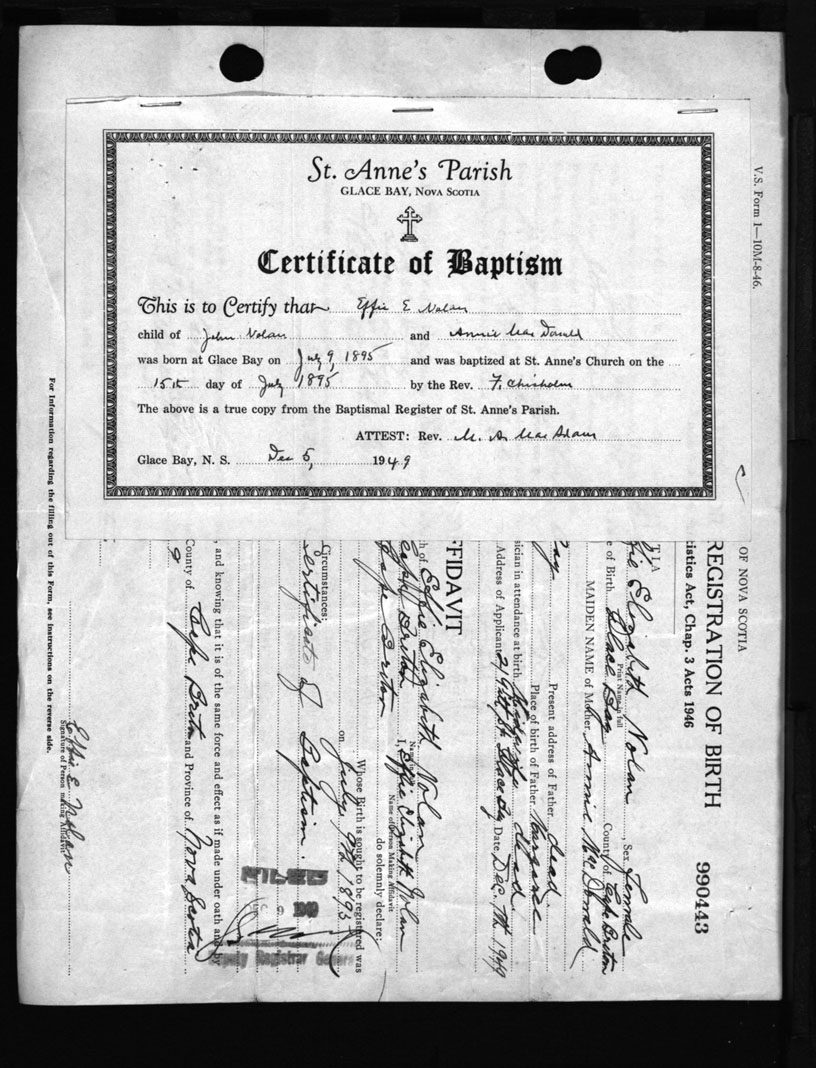 St. Anne's Parish
GLACE BAY, NOVA SCOTIA
Certificate of Baptism
This is to Certify that Effie E Nolan
child of John Nolan and Annie MacDonald
was born at Glace Bay on July 9, 1895 and was baptized at St. Anne's Church on the
15th day of July 1895 by the Rev. F. Chisholm
The above is a true copy from the Baptismal Register of St. Anne's Parish.
ATTEST: Rev. M. A. MacAdam
Glace Bay, N. S. Dec 5, 1949
V.S. Form 1—10M-8-46.
OF NOVA SCOTIA
REGISTRATION OF BIRTH 990443
istics Act, Chap. 3 Acts 1946
TIA
fie Elizabeth Nolan, Sex Female
Print Name in full
e of Birth Glace Bay County of Cape Breton
MAIDEN NAME of Mother Annie McDonald
ay
Present address of Father dead
Place of birth of Father
sician in attendance at birth dead
Address of Applicant Glace Bay Date Dec. 7th 1949
FFIDAVIT
h of Effie Elizabeth Nolan
Name in full
I, Effie Elizabeth Nolan
Name of Person Making Affidavit
Cape Breton do solemnly declare:
Cape Breton
Whose Birth is sought to be registered was
on July 9th 1895
Circumstances:
Certificate of Baptism.
, and knowing that it is of the same force and effect as if made under oath and by
County of Cape Breton and Province of Nova Scotia
9
Deputy Registrar General
Effie E. Nolan
Signature of Person making Affidavit
For Information regarding the filling out of this Form, see instructions on the reverse side.